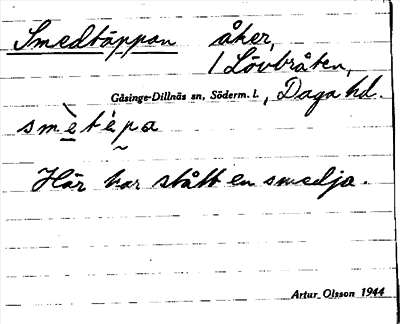 Smedtäppan åker,
1 Lövbråten,
Gåsinge-Dillnäs sn, Söderm. l., Daga hd.
smètépa
Här har stått en smedja.
Artur Olsson 1944